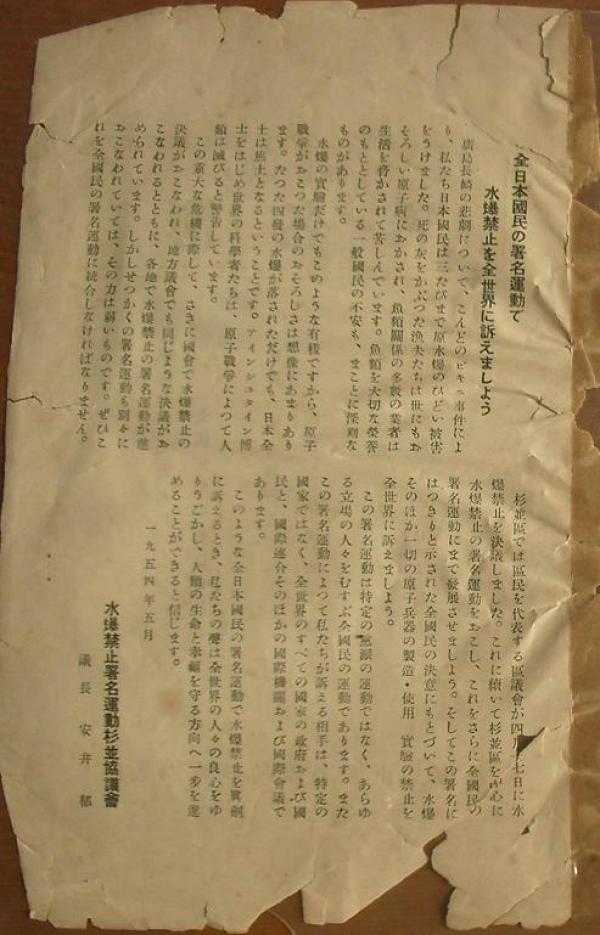 全日本國民の署名運動で
水爆禁止を全世界に訴えましよう
廣島長崎の悲劇について、こんどのビキニ事件によ
り、私たち日本國民は三たびまで原水爆のひどい被害
をうけました。死の灰をかぶつた漁夫たちは世にもお
そろしい原子病におかされ、魚類關係の多数の業者は
生活を脅かされて苦しんでいます。魚類を大切な榮養
のもととしている一般國民の不安も、まことに深刻な
ものがあります。
水爆の實驗だけでもこのような有樣ですから、原子
戰爭がおこつた場合のおそろしさは想像にあまりあり
ます。たつた四發の水爆が落されただけでも、日本全
土は焦土となるということです。アインシュタイン博
士をはじめ世界の科學者たちは、原子戰爭によつて人
類は滅びると警告しています。
この重大な危機に際して、さきに國會で水爆禁止の
決議がおこなわれ、地方議會でも同じような決議がお
こなわれるとともに、各地で水爆禁止の署名運動が進
められています。しかしせつかくの署名運動も別々に
おこなわれていては、その力は弱いものです。ぜひこ
れを全國民の署名運動に統合しなければなりません。
杉並區では區民を代表する區議會が四月十七日に水
爆禁止を決議しました。これに續いて杉並區を中心に
水爆禁止の署名運動をおこし、これをさらに全國民の
署名運動にまで發展させましよう。そしてこの署名に
はつきりと示された全國民の決意にもとづいて、水爆
そのほか一切の原子兵器の製造・使用 實驗の禁止を
全世界に訴えましよう。
この署名運動は特定の黨派の運動ではなく、あらゆ
る立場の人々をむすぶ全國民の運動であります。また
この署名運動によつて私たちが訴える相手は、特定の
國家ではなく、全世界のすべての國家の政府および國
民と、國際連合そのほかの國際機關および國際會議で
あります。
このような全日本國民の署名運動で水爆禁止を眞劍
に訴えるとき、私たちの聲は全世界の人々の良心をゆ
りうごかし、人類の生命と幸福を守る方向へ一歩を進
めることができると信じます。
一九五四年五月
水爆禁止署名運動杉並協議會
議長 安井郁